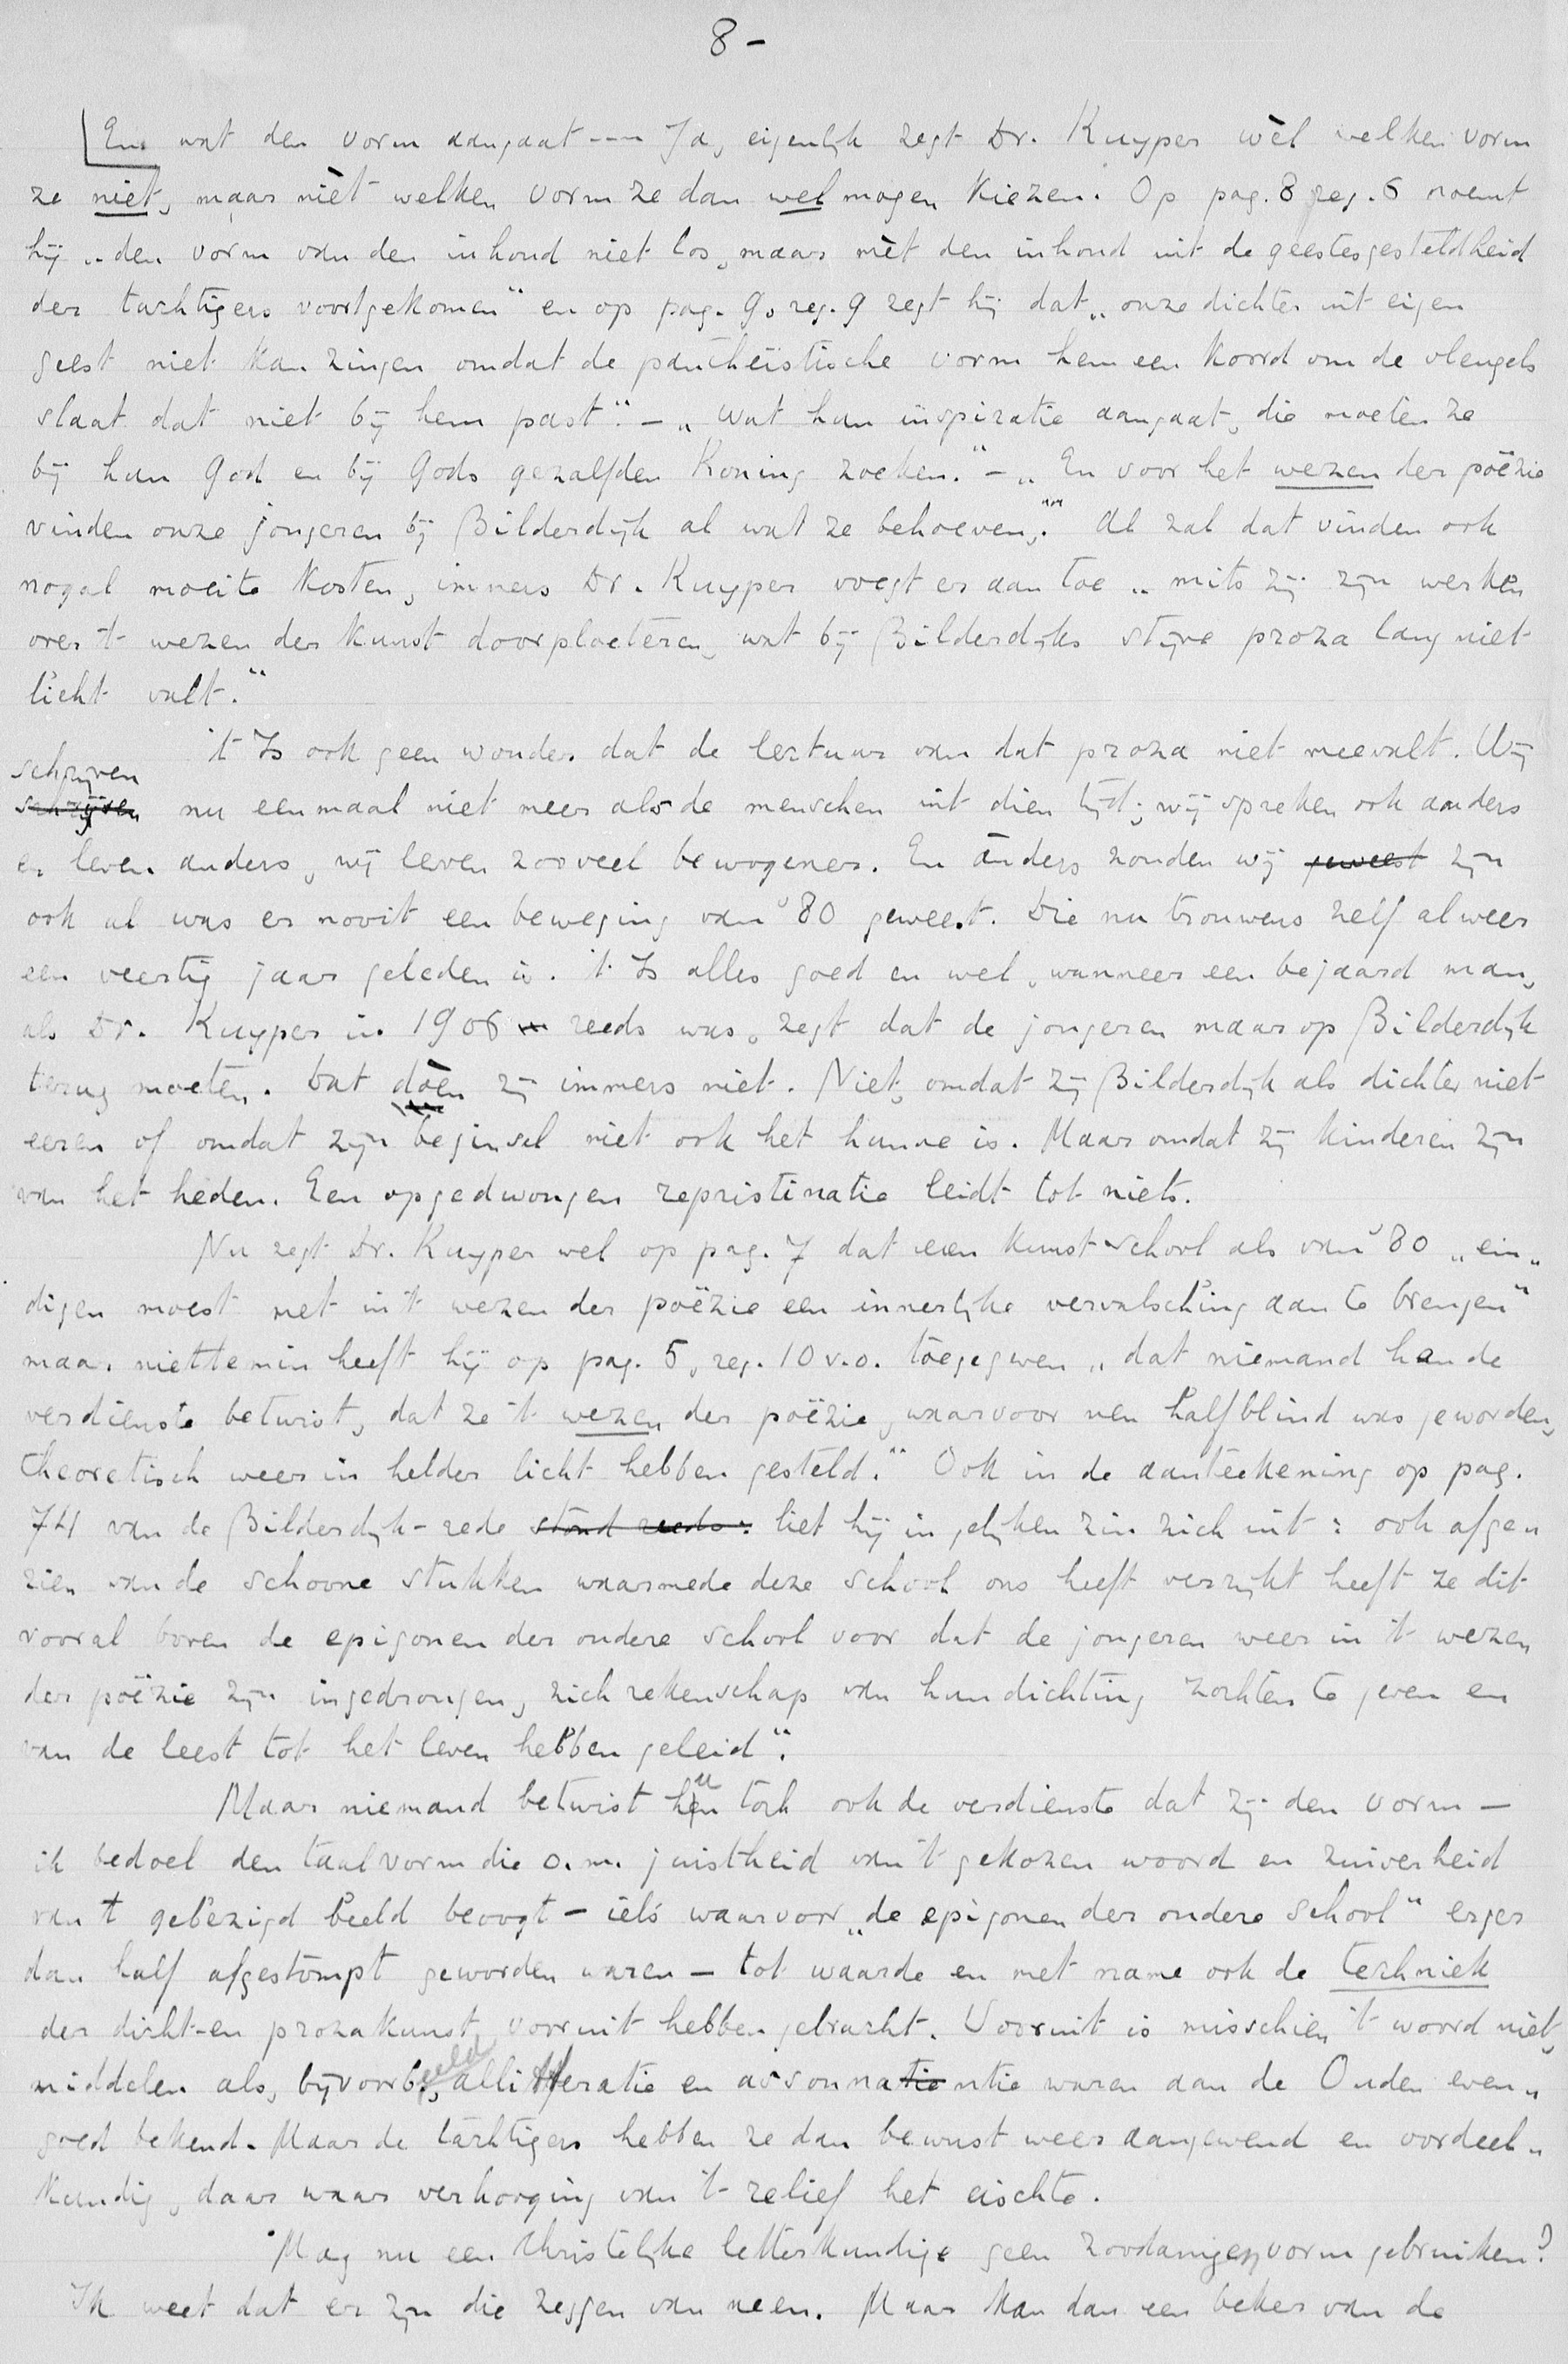 8 -
En wat den vorm aangaat --- Ja, eigenlijk zegt Dr. Kuyper wèl welken vorm
ze niet, maar nièt welken vorm ze dan wel mogen kiezen. Op pag. 8 reg. 6 noemt
hij „den vorm van den inhoud niet los, maar mèt den inhoud uit de geestesgesteldheid
der tachtigers voortgekomen" en op pag. 9, reg. 9 zegt hij dat „onze dichter uit eigen
geest niet kan zingen omdat de pantheïstische vorm hem een koord om de vleugels
slaat dat niet bij hem past". - „Wat hun inspiratie aangaat, die moeten ze
bij hun God en bij Gods gezalfden Koning zoeken." - „En voor het wezen der poëzie
vinden onze jongeren bij Bilderdijk al wat ze behoeven," Al zal dat vinden ook
nogal moeite kosten, immers Dr. Kuyper voegt er aan toe „mits zij zijn werken
over 't wezen der kunst doorploeteren, wat bij Bilderdijks stijve proza lang niet
licht valt."
't Is ook geen wonder dat de lectuur van dat proza niet meevalt. Wij
schrijven
schrijven nu eenmaal niet meer als de menschen uit dien tijd; wij spreken ook anders
en leven anders, wij leven zooveel bewogener. En ànders zouden wij geweest zijn
ook al was er nooit een beweging van '80 geweest. Die nu trouwens zelf alweer
een veertig jaar geleden is. 't Is alles goed en wel, wanneer een bejaard man,
als Dr. Kuyper in 1906 reeds was, zegt dat de jongeren maar op Bilderdijk
terug moeten. Dat dòen zij immers niet. Niet, omdat zij Bilderdijk als dichter niet
eeren of omdat zijn beginsel niet ook het hunne is. Maar omdat zij kinderen zijn
van het heden. Een opgedwongen repristinatie leidt tot niets.
Nu zegt Dr. Kuyper wel op pag. 7 dat een kunstschool als van '80 „ein„
digen moest met in 't wezen der poëzie een innerlijke vervalsching aan te brengen"
maar niettemin heeft hij op pag. 5, reg. 10 v.o. toegegeven „dat niemand hun de
verdienste betwist, dat ze 't wezen der poëzie, waarvoor men halfblind was geworden,
theoretisch weer in helder licht hebben gesteld." Ook in de aanteekening op pag.
74 van de Bilderdijk-rede stond reeds: liet hij in gelijken zin zich uit: ook afgen
zien van de schoone stukken waarmede deze school ons heeft verrijkt heeft ze dit
vooral boven de epigonen der oudere school voor dat de jongeren weer in 't wezen
der poëzie zijn ingedrongen, zich rekenschap van hun dichting zochten te geven en
van de leest tot het leven hebben geleid".
Maar niemand betwist hun toch ook de verdienste dat zij den vorm -
ik bedoel den taalvorm die o.m. juistheid van 't gekozen woord en zuiverheid
van 't gebezigd beeld beoogt - iets waarvoor „de epigonen der oudere school" erger
dan half afgestompt geworden waren - tot waarde en met name ook de techniek
der dicht-en prozakunst, vooruit hebben gebracht. Vooruit is misschien 't woord niet,
middelen als, bijvoorbeeld, allitteratie en assonnatie ntie waren aan de Ouden even„
goed bekend. Maar de tachtigers hebben ze dan bewust weer aangewend en oordeel„
kundig, daar waar verhooging van 't relief het eischte.
Mag nu een Christelijke letterkundige geen zoodanigen vorm gebruiken?
Ik weet dat er zijn die zeggen van neen. Maar kan dan een beker van de